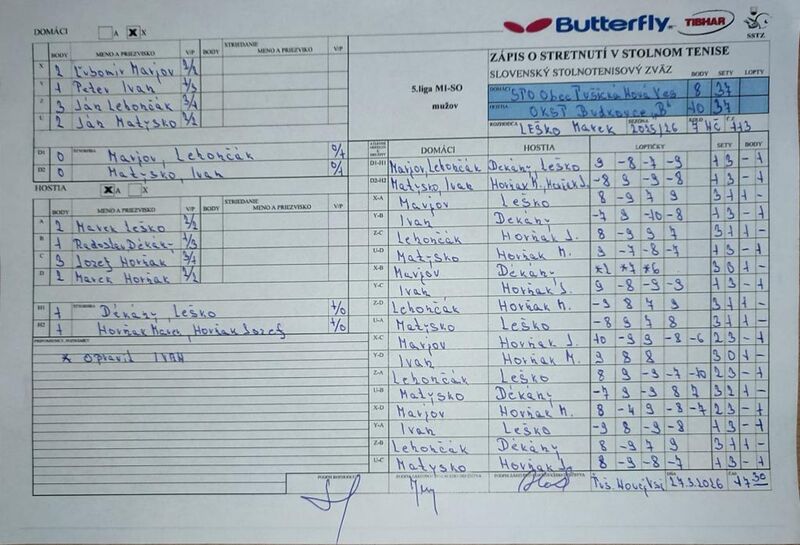 DOMÁCI A X X
Butterfly TIBHAR SSTZ
BODY MENO A PRIEZVISKO V/P BODY STRIEDANIE MENO A PRIEZVISKO V/P
X 2 Ľubomír Marjov 2/2
Y 1 Peter Ivan 1/3
Z 3 Ján Lehončák 3/1
U 2 Ján Matysko 2/2
D1 0 ŠTVORHRA Marjov, Lehončák 0/1
D2 0 Matysko, Ivan 0/1
HOSTIA X A X
BODY MENO A PRIEZVISKO V/P BODY STRIEDANIE MENO A PRIEZVISKO V/P
A 2 Marek Leško 2/2
B 1 Radoslav Dékány 1/3
C 3 Jozef Horňak 3/1
D 2 Marek Horňak 2/2
H1 1 ŠTVORHRA Dékány, Leško 1/0
H2 1 Horňak Marek, Horňak Jozef 1/0
PRIPOMIENKY, POZNÁMKY
* opravil IVAN
5.liga MI-SO
mužov
ZÁPIS O STRETNUTÍ V STOLNOM TENISE
SLOVENSKÝ STOLNOTENISOVÝ ZVÄZ BODY SETY LOPTY
DOMÁCI ŠPO Obec Pušická Nová Ves 8 37
HOSTIA OKST Budkovce "B" 10 37
ROZHODCA Leško Marek SEZÓNA 2025/26 KOLO Č.Z. 113
DOMÁCI HOSTIA LOPTIČKY SETY BODY
D1-H1 Marjov, Lehončák Dékány, Leško 9 -8 -7 -9 1 3 - 1
D2-H2 Matysko, Ivan Horňak M., Horňak J. -8 9 -9 -8 1 3 - 1
X-A Marjov Leško 8 -9 7 9 3 1 1 -
Y-B Ivan Dékány -7 9 -10 -8 1 3 - 1
Z-C Lehončák Horňak J. -8 9 9 7 3 1 1 -
U-D Matysko Horňak M. 9 -7 -8 -7 1 3 - 1
X-B Marjov Dékány *1 *7 *6 3 0 1 -
Y-C Ivan Horňak J. 9 -8 -9 -9 1 3 - 1
Z-D Lehončák Horňak M. -9 8 7 9 3 1 1 -
U-A Matysko Leško -8 9 7 8 3 1 1 -
X-C Marjov Horňak J. 10 -9 9 -8 -6 2 3 - 1
Y-D Ivan Horňak M. 9 8 8 3 0 1 -
Z-A Lehončák Leško 8 9 -9 -7 -10 2 3 - 1
U-B Matysko Dékány -7 9 -9 8 7 3 2 1 -
X-D Marjov Horňak M. 8 -4 9 -8 -7 2 3 - 1
Y-A Ivan Leško -9 8 -9 -8 1 3 - 1
Z-B Lehončák Dékány 8 -9 7 9 3 1 1 -
U-C Matysko Horňak J. 8 -9 -8 -7 1 3 - 1
PODPIS ROZHODCU
Puš. Nová Ves 27.3.2026 ČAS 17 30